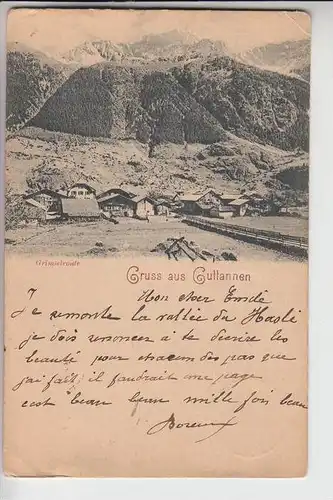 Grimselroute
Gruss aus Guttannen
Mon cher Emile
Je remonte la vallée du Hasli
je dois renoncer à te décrire les
beauté pour chacun des pas que
j'ai fait, il faudrait une page
c'est beau beau mille fois beau